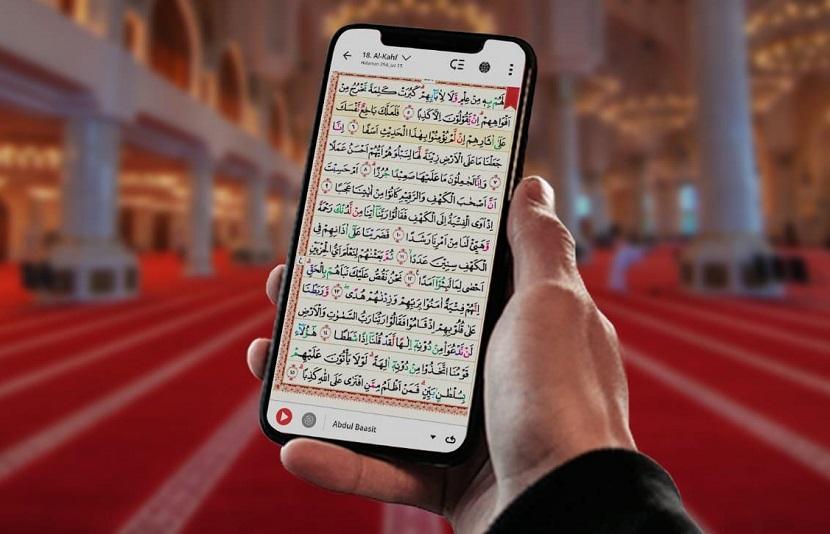 18. Al-Kahf
Halaman 294, Juz 15
لَهُمْ بِهِ مِنْ عِلْمٍ وَلَا لِاٰبَاۤئِهِمْ كَبُرَتْ كَلِمَةً تَخْرُجُ مِنْ
اَفْوَاهِهِمْ اِنْ يَقُوْلُوْنَ اِلَّا كَذِبًا ٥ فَلَعَلَّكَ بَاخِعٌ نَفْسَكَ
عَلٰٓى اٰثَارِهِمْ اِنْ لَمْ يُؤْمِنُوْا بِهٰذَا الْحَدِيْثِ اَسَفًا ٦ اِنَّا
جَعَلْنَا مَا عَلَى الْاَرْضِ زِيْنَةً لَهَا لِنَبْلُوَهُمْ اَيُّهُمْ اَحْسَنُ عَمَلًا
٧ وَاِنَّا لَجَاعِلُوْنَ مَا عَلَيْهَا صَعِيْدًا جُرُزًا ٨ اَمْ حَسِبْتَ
اَنَّ اَصْحٰبَ الْكَهْفِ وَالرَّقِيْمِ كَانُوْا مِنْ اٰيٰتِنَا عَجَبًا ٩
اِذْ اَوَى الْفِتْيَةُ اِلَى الْكَهْفِ فَقَالُوْا رَبَّنَا اٰتِنَا مِنْ لَدُنْكَ رَحْمَةً
وَهَيِّئْ لَنَا مِنْ اَمْرِنَا رَشَدًا ١٠ فَضَرَبْنَا عَلٰٓى اٰذَانِهِمْ فِى
الْكَهْفِ سِنِيْنَ عَدَدًا ١١ ثُمَّ بَعَثْنٰهُمْ لِنَعْلَمَ اَيُّ الْحِزْبَيْنِ
اَحْصٰى لِمَا لَبِثُوْٓا اَمَدًا ١٢ نَحْنُ نَقُصُّ عَلَيْكَ نَبَاَهُمْ بِالْحَقِّ
اِنَّهُمْ فِتْيَةٌ اٰمَنُوْا بِرَبِّهِمْ وَزِدْنٰهُمْ هُدًى ١٣ وَرَبَطْنَا
عَلٰى قُلُوْبِهِمْ اِذْ قَامُوْا فَقَالُوْا رَبُّنَا رَبُّ السَّمٰوٰتِ وَالْاَرْضِ
لَنْ نَدْعُوَا۟ مِنْ دُوْنِهٖٓ اِلٰهًا لَقَدْ قُلْنَآ اِذًا شَطَطًا ١٤ هٰٓؤُلَاۤءِ
قَوْمُنَا اتَّخَذُوْا مِنْ دُوْنِهٖٓ اٰلِهَةً لَوْلَا يَأْتُوْنَ عَلَيْهِمْ
بِسُلْطٰنٍ بَيِّنٍ فَمَنْ اَظْلَمُ مِمَّنِ افْتَرٰى عَلَى اللّٰهِ كَذِبًا ١٥
Abdul Baasit